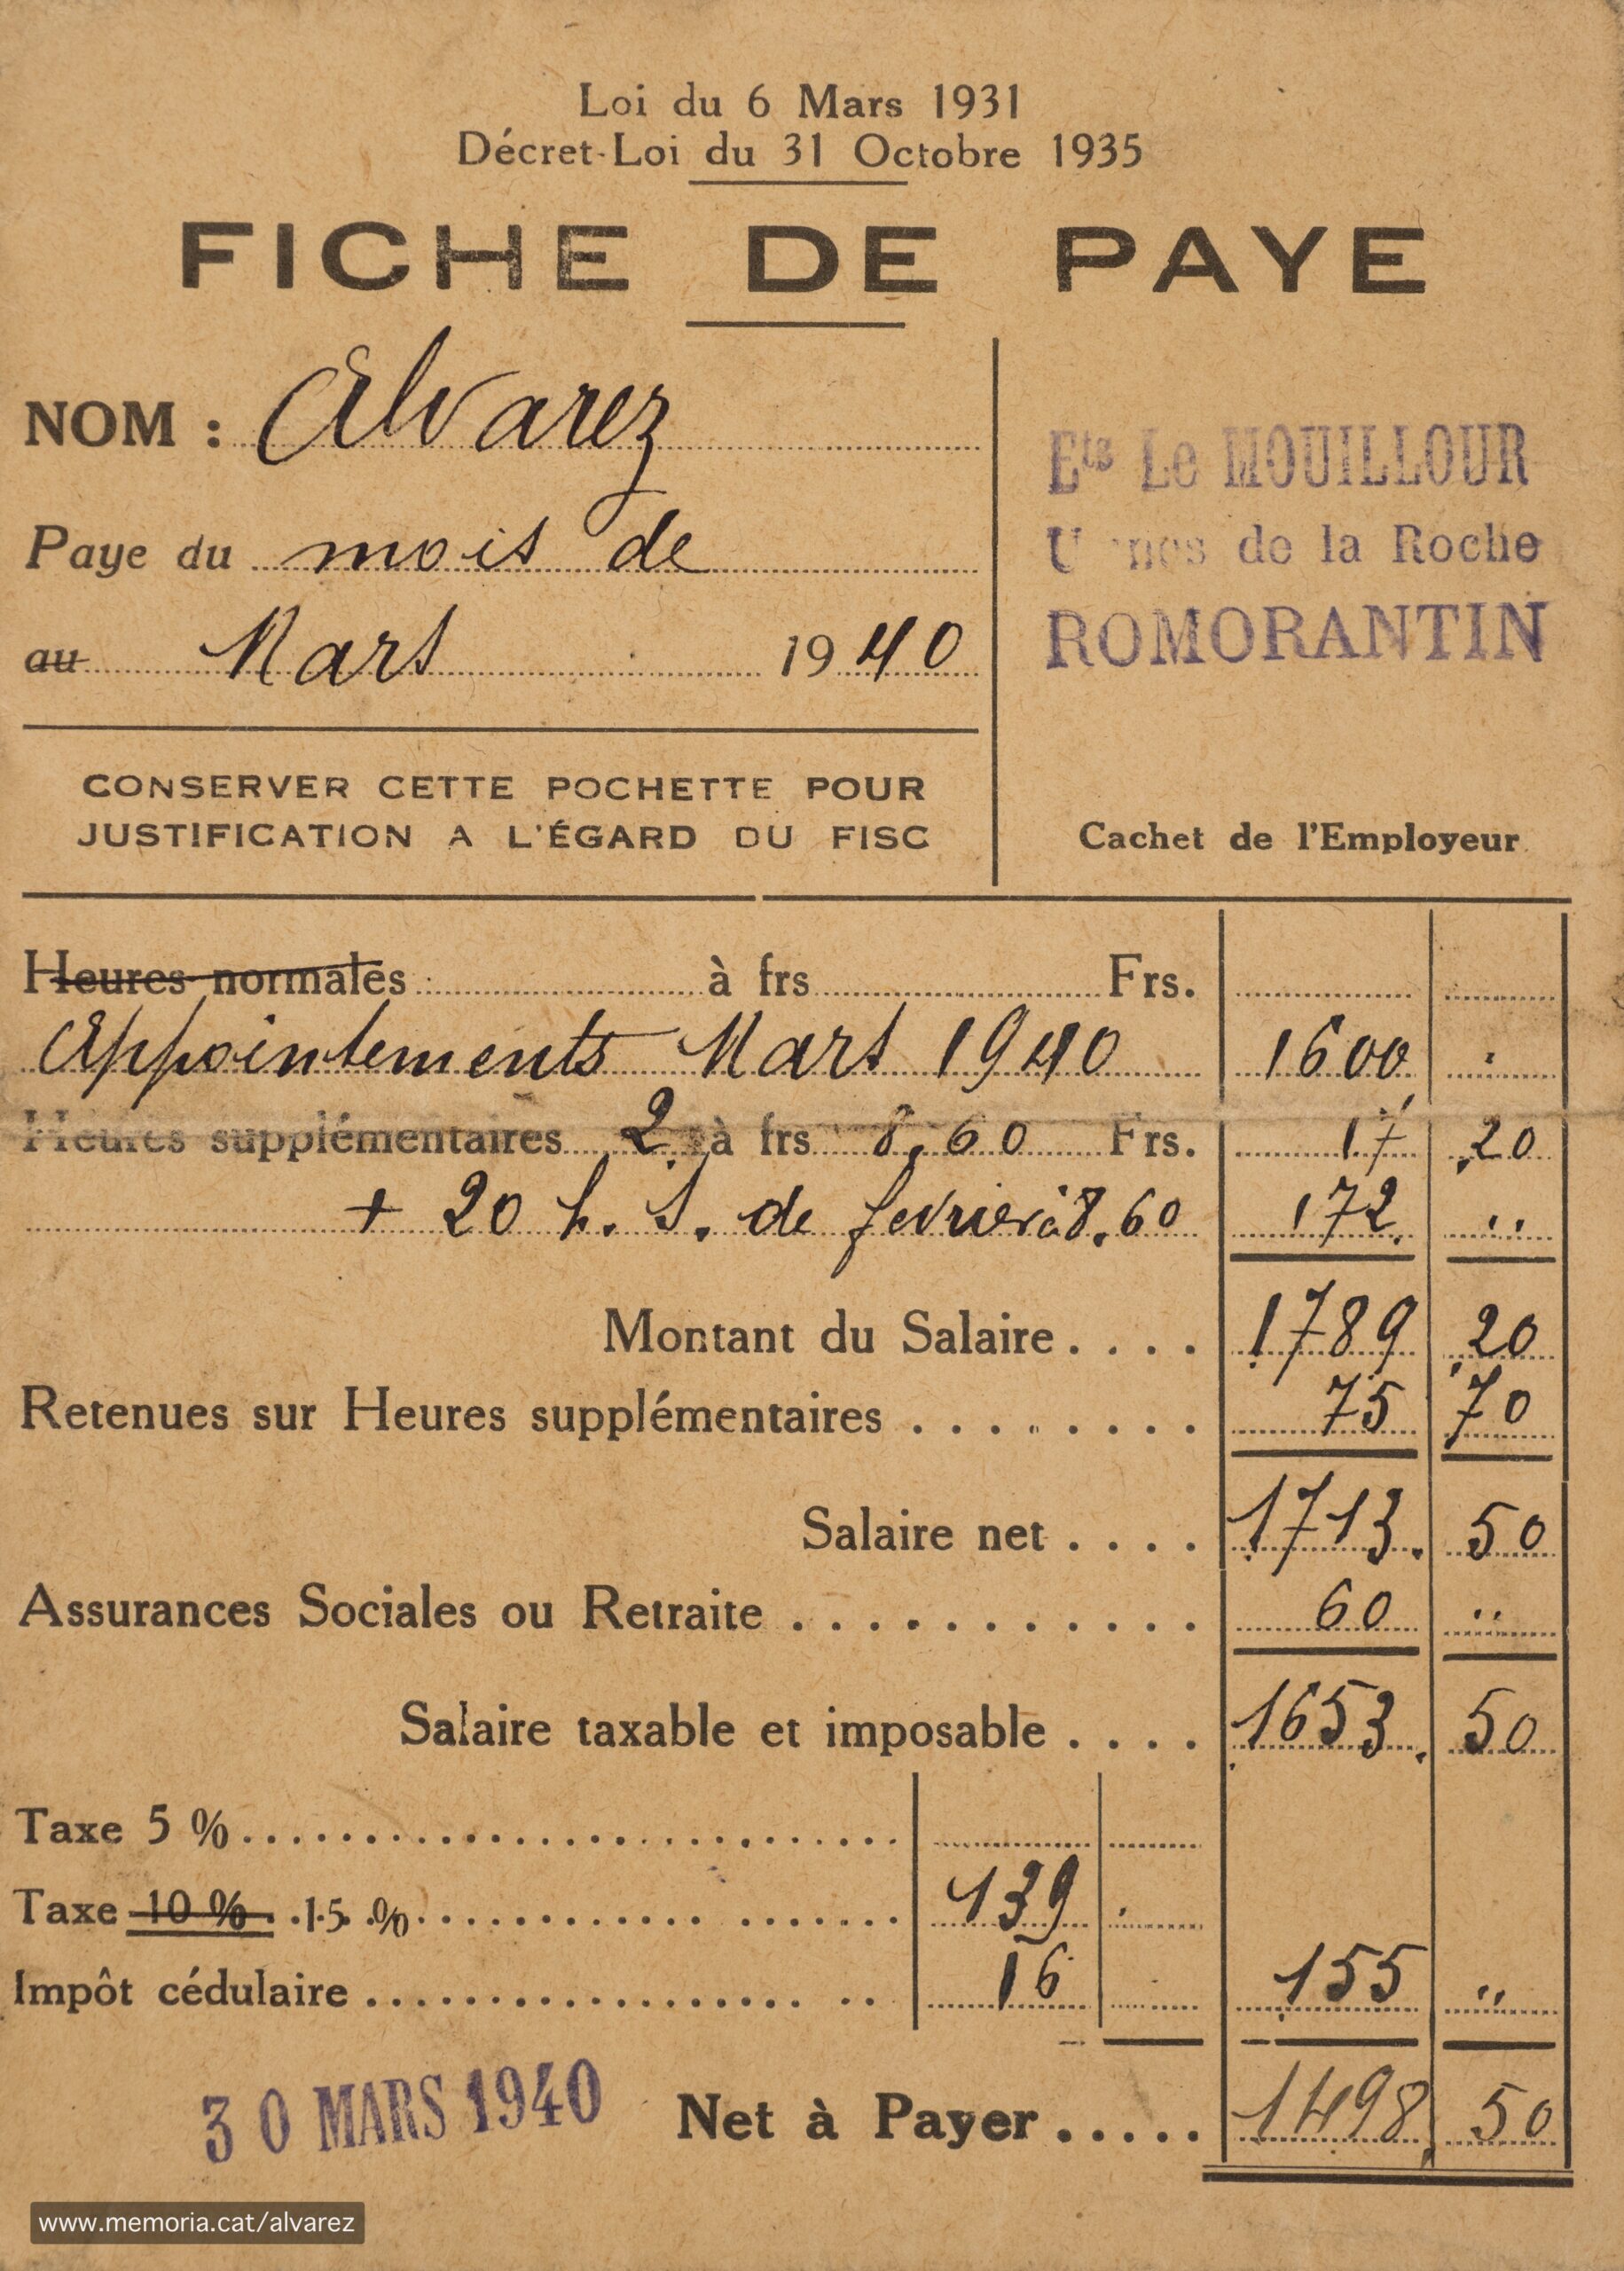 Loi du 6 Mars 1931
Décret-Loi du 31 Octobre 1935
FICHE DE PAYE
NOM : Alvarez
Paye du mois de
au Mars 1940
Ets Le MOUILLOUR
de la Roche
ROMORANTIN
CONSERVER CETTE POCHETTE POUR
JUSTIFICATION A L'ÉGARD DU FISC
Cachet de l'Employeur
Heures normales à frs Frs.
Appointements Mars 1940 1600
Heures supplémentaires 2 à frs 8.60 Frs. 17 20
+ 20 h. S. de fevrier à 8.60 172. "
Montant du Salaire 1789 20
Retenues sur Heures supplémentaires 75 70
Salaire net 1713. 50
Assurances Sociales ou Retraite 60 "
Salaire taxable et imposable 1653. 50
Taxe 5 %
Taxe 10 % 15 % 139
Impôt cédulaire 16 155 "
30 MARS 1940 Net à Payer 1498 50
www.memoria.cat/alvarez